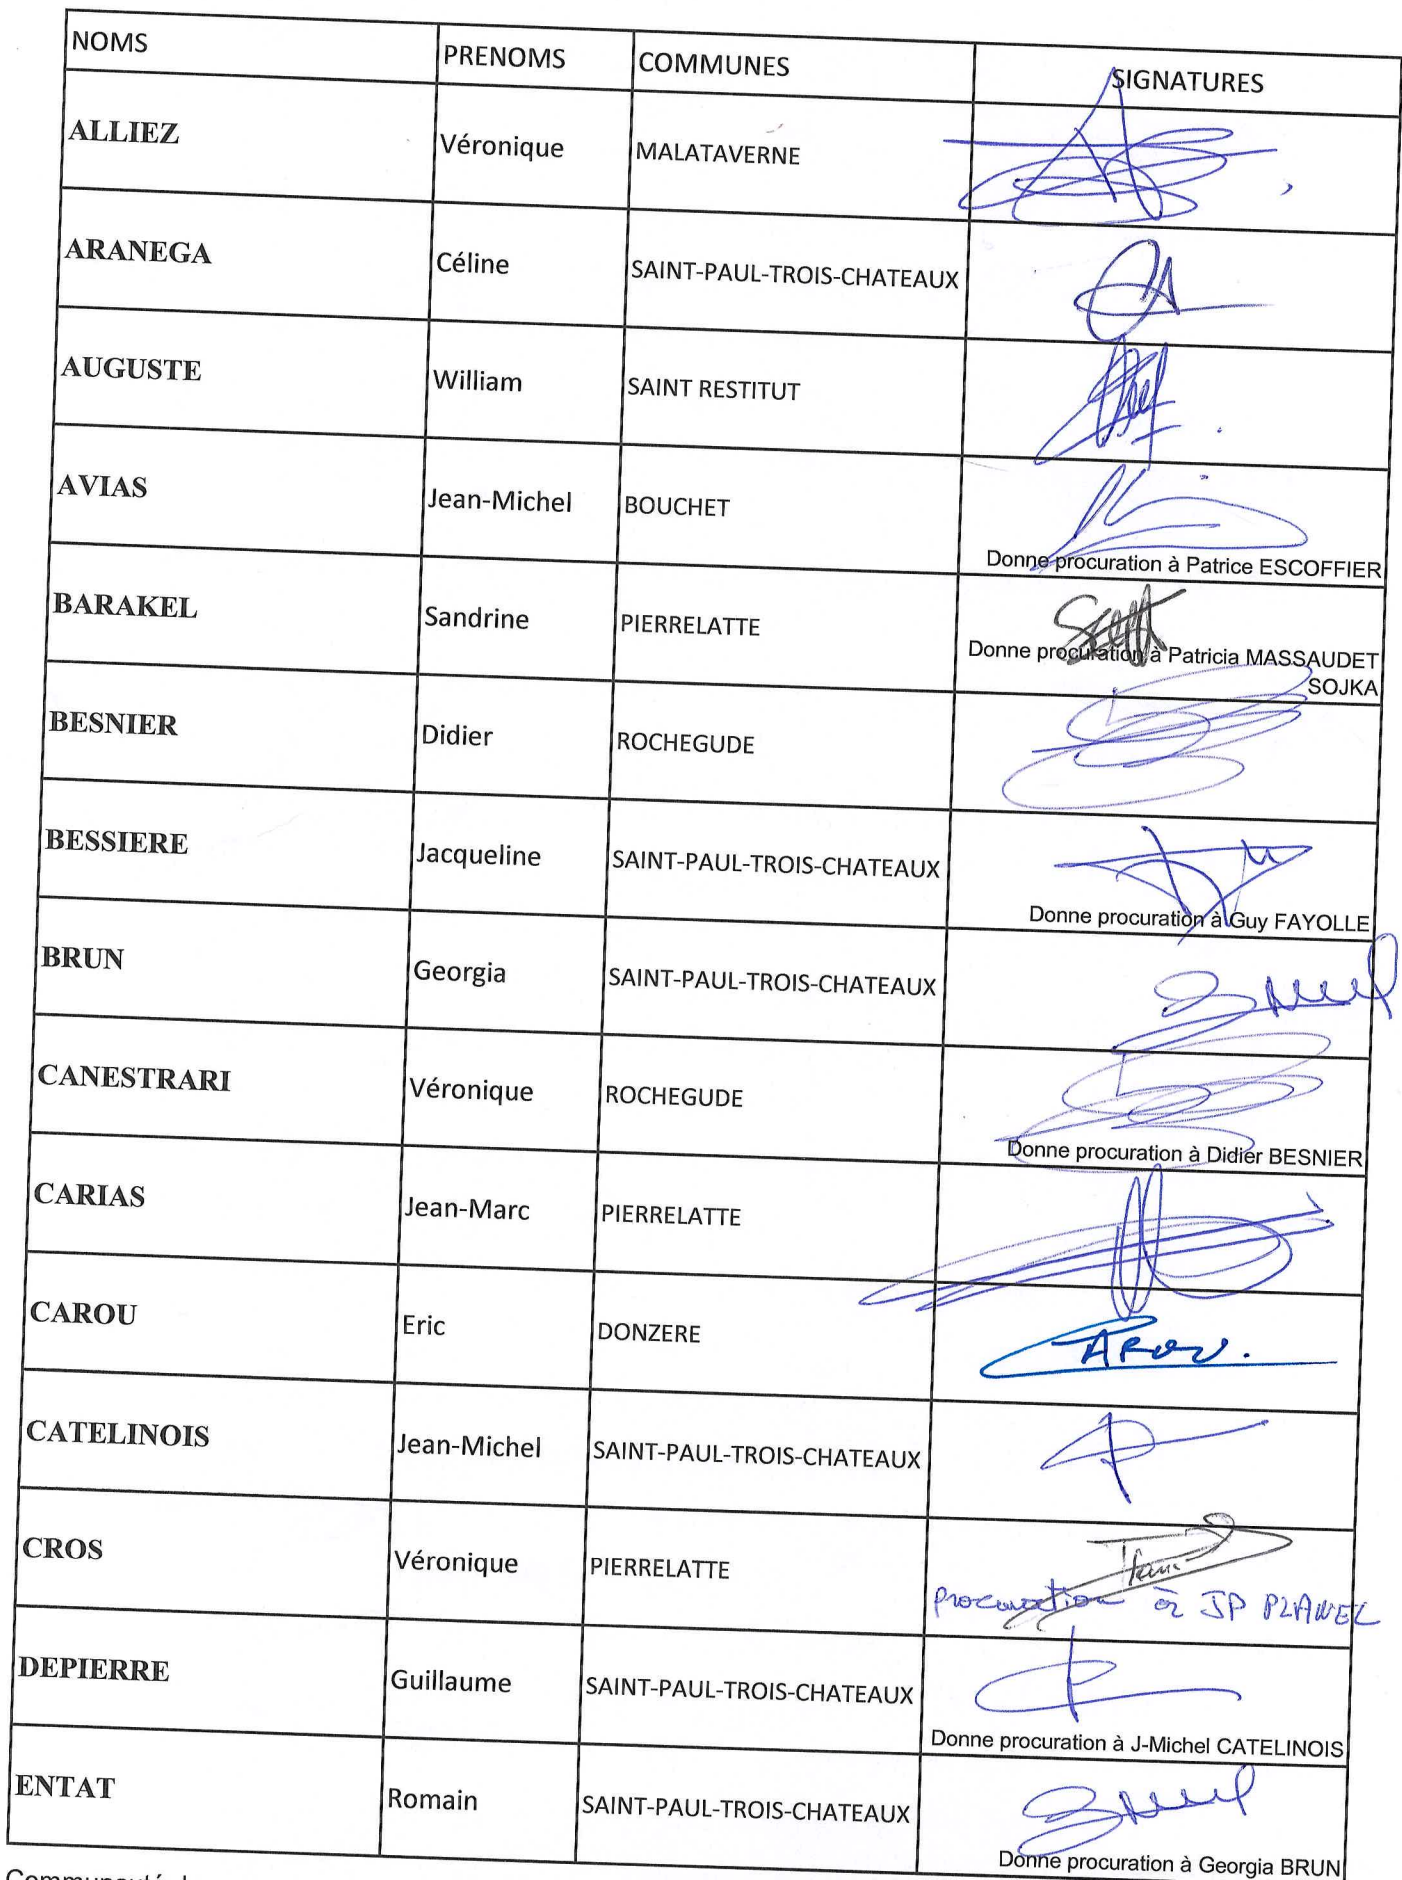 NOMS PRENOMS COMMUNES SIGNATURES
ALLIEZ Véronique MALATAVERNE
ARANEGA Céline SAINT-PAUL-TROIS-CHATEAUX
AUGUSTE William SAINT RESTITUT
AVIAS Jean-Michel BOUCHET
Donne procuration à Patrice ESCOFFIER
BARAKEL Sandrine PIERRELATTE
Donne procuration à Patricia MASSAUDET
SOJKA
BESNIER Didier ROCHEGUDE
BESSIERE Jacqueline SAINT-PAUL-TROIS-CHATEAUX
Donne procuration à Guy FAYOLLE
BRUN Georgia SAINT-PAUL-TROIS-CHATEAUX
CANESTRARI Véronique ROCHEGUDE
Donne procuration à Didier BESNIER
CARIAS Jean-Marc PIERRELATTE
CAROU Eric DONZERE
CAROU.
CATELINOIS Jean-Michel SAINT-PAUL-TROIS-CHATEAUX
CROS Véronique PIERRELATTE
procuration à JP PLANEL
DEPIERRE Guillaume SAINT-PAUL-TROIS-CHATEAUX
Donne procuration à J-Michel CATELINOIS
ENTAT Romain SAINT-PAUL-TROIS-CHATEAUX
Donne procuration à Georgia BRUN